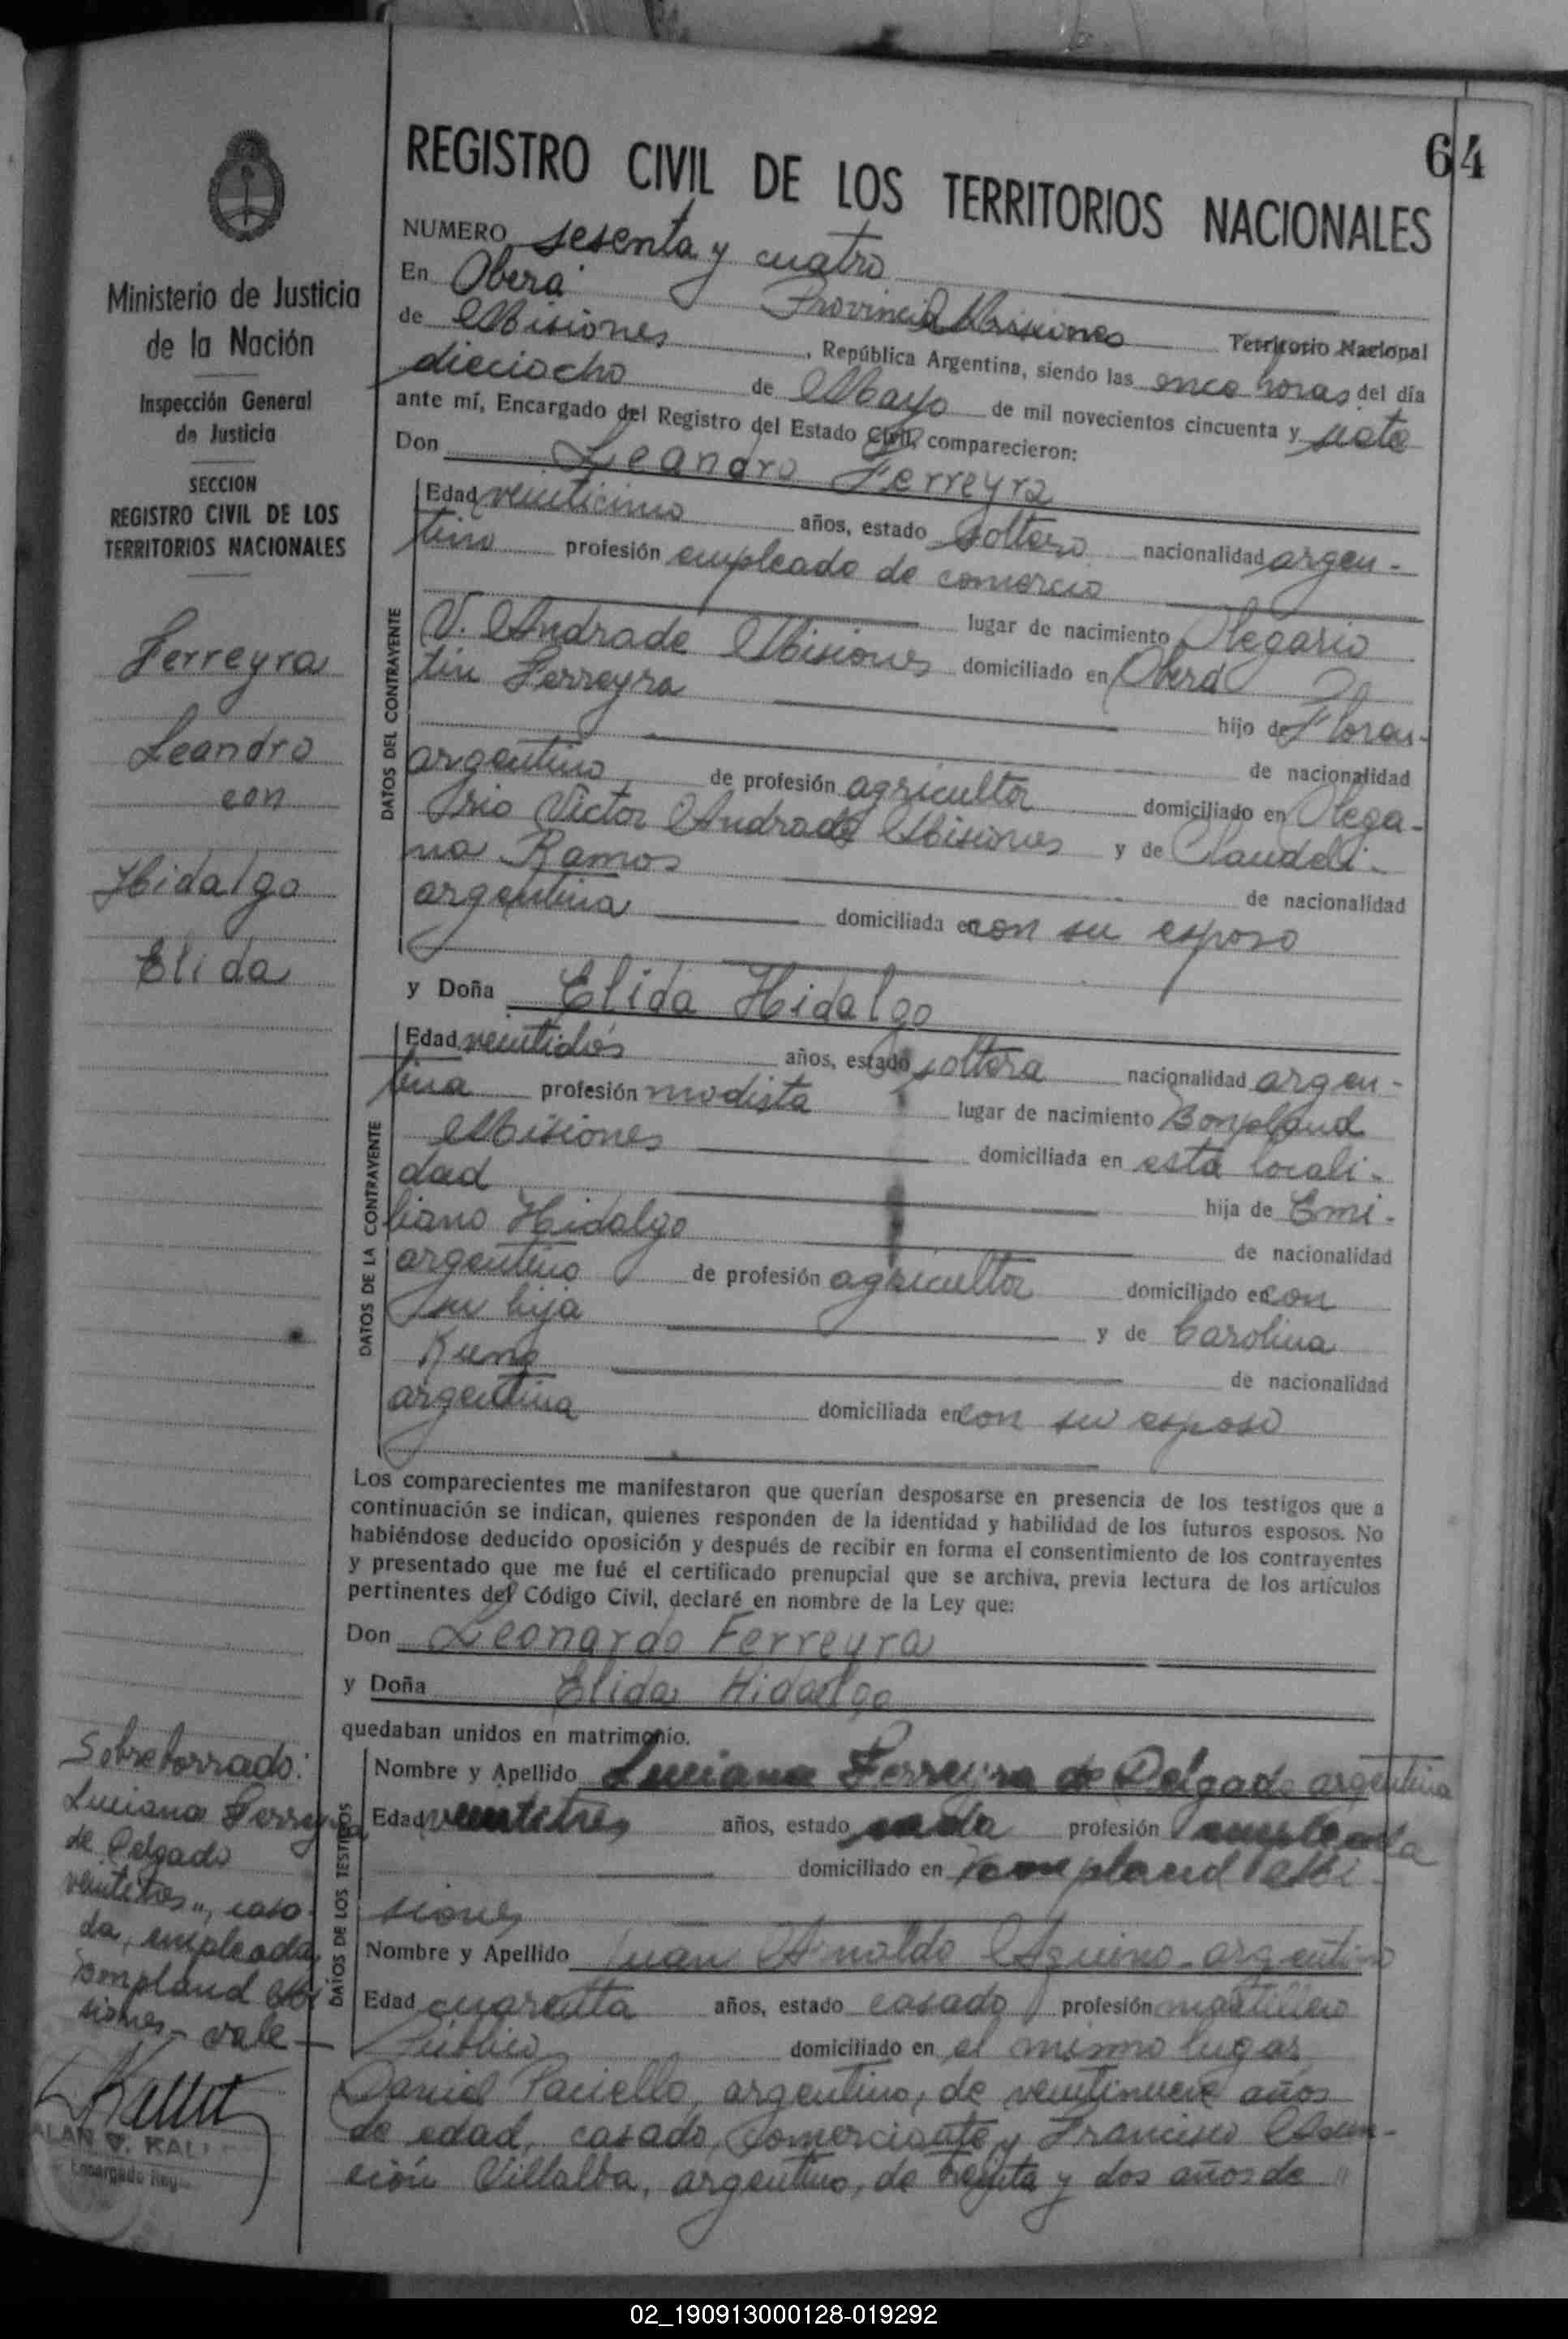 64
REGISTRO CIVIL DE LOS TERRITORIOS NACIONALES
Ministerio de Justicia
de la Nación
Inspección General
de Justicia
SECCION
REGISTRO CIVIL DE LOS
TERRITORIOS NACIONALES
Ferreyra
Leandro
con
Hidalgo
Elida
NUMERO sesenta y cuatro
En Oberá Provincia Misiones Territorio Nacional
de Misiones, República Argentina, siendo las once horas del día
dieciocho de Mayo de mil novecientos cincuenta y siete
ante mí, Encargado del Registro del Estado Civil, comparecieron:
Don Leandro Ferreyra
DATOS DEL CONTRAYENTE
Edad veinticinco años, estado soltero nacionalidad argen-
tino profesión empleado de comercio
lugar de nacimiento Olegario
V. Andrade Misiones domiciliado en Oberá
hijo de Floren-
tin Ferreyra
de nacionalidad
argentino de profesión agricultor domiciliado en Olega-
rio Victor Andrade Misiones y de Claudeli-
na Ramos de nacionalidad
argentina domiciliada en con su esposo
y Doña Elida Hidalgo
DATOS DE LA CONTRAYENTE
Edad veintidós años, estado soltera nacionalidad argen-
tina profesión modista lugar de nacimiento Bonpland
Misiones domiciliada en esta locali-
dad hija de Emi-
liano Hidalgo de nacionalidad
argentino de profesión agricultor domiciliado en con
su hija y de Carolina
de nacionalidad
argentina domiciliada en con su esposo
Los comparecientes me manifestaron que querían desposarse en presencia de los testigos que a
continuación se indican, quienes responden de la identidad y habilidad de los futuros esposos. No
habiéndose deducido oposición y después de recibir en forma el consentimiento de los contrayentes
y presentado que me fué el certificado prenupcial que se archiva, previa lectura de los artículos
pertinentes del Código Civil, declaré en nombre de la Ley que:
Don Leonardo Ferreyra
y Doña Elida Hidalgo
quedaban unidos en matrimonio.
DATOS DE LOS TESTIGOS
Nombre y Apellido Luciana Ferreyra de Delgado argentina
Edad veintitres años, estado casada profesión empleada
domiciliado en Bompland Mi-
siones
Nombre y Apellido Juan Arnoldo Aquino argentino
Edad cuarenta años, estado casado profesión martillero
Público domiciliado en el mismo lugar
Daniel Paciello, argentino, de veintinueve años
de edad, casado, comerciante y Francisco Asun-
ción Villalba, argentino, de treinta y dos años de
Sobreborrado:
Luciana Ferreyra
de Delgado
veintitres, casa-
da, empleada
Bompland Mi-
siones - vale -
ALAN V. KAL
Encargado Reg
02_190913000128-019292